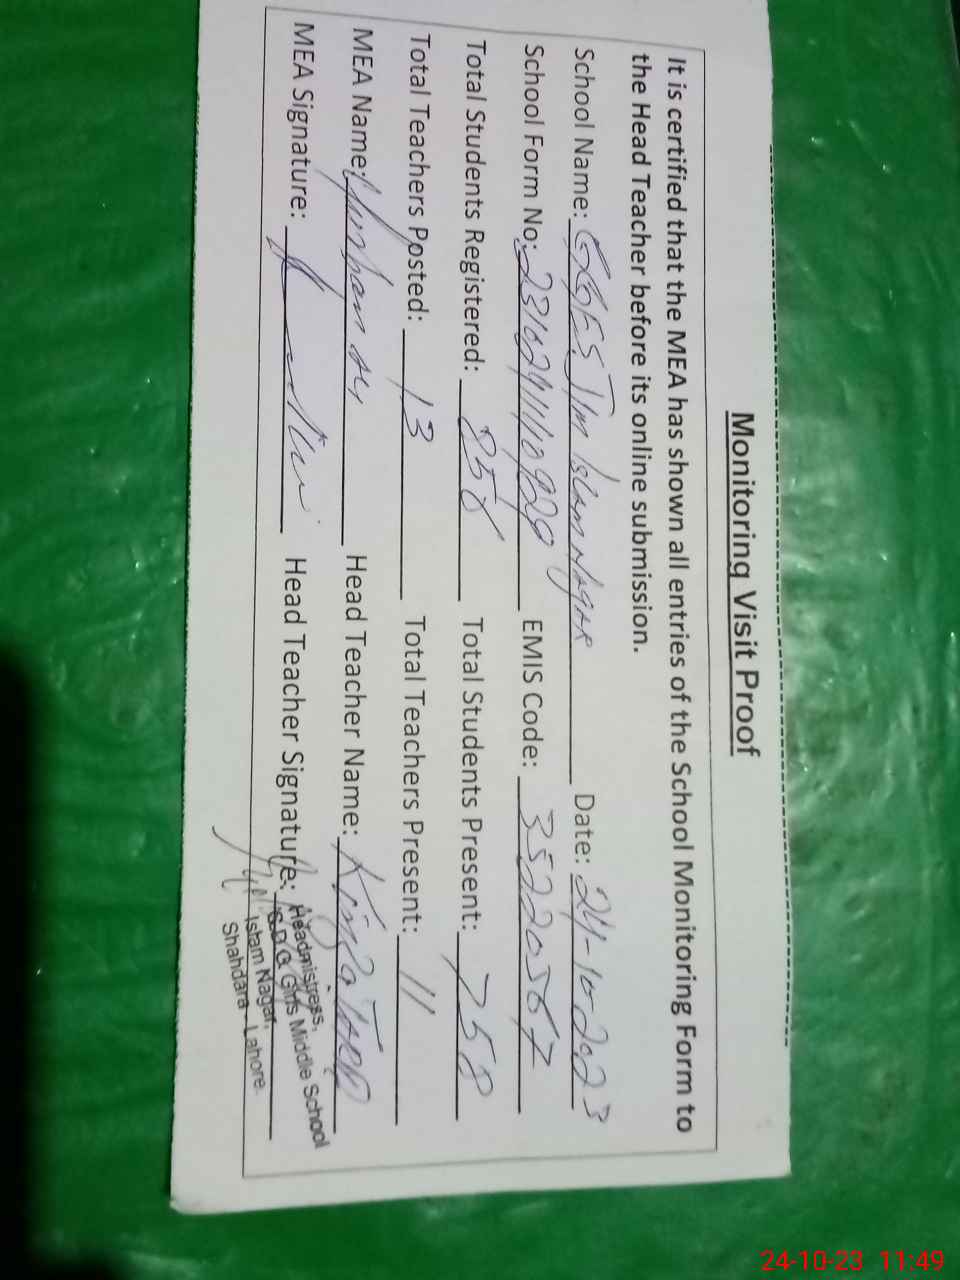 Monitoring Visit Proof
It is certified that the MEA has shown all entries of the School Monitoring Form to
the Head Teacher before its online submission.
School Name: GGES. Islam Nagar Date: 24-10-2023
School Form No: EMIS Code: 35220567
Total Students Registered: 858 Total Students Present: 758
Total Teachers Posted: 13 Total Teachers Present: 11
MEA Name: Head Teacher Name:
MEA Signature: Head Teacher Signature:
Headmistress,
Girls Middle School
Islam Nagar,
Shahdara Lahore.
24-10-23 11:49